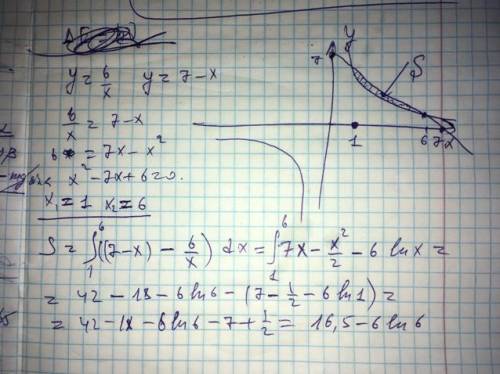 y = 6/x   y = 7 - x
6/x = 7 - x
6 = 7x - x²
x² - 7x + 6 = 0.
x₁ = 1   x₂ = 6
S = ∫₁⁶ ((7 - x) - 6/x) dx = ∫₁⁶ 7x - x²/2 - 6 ln x =
= 42 - 18 - 6 ln 6 - (7 - 1/2 - 6 ln 1) =
= 42 - 18 - 6 ln 6 - 7 + 1/2 = 16,5 - 6 ln 6
y
7
S
1
6 7 x